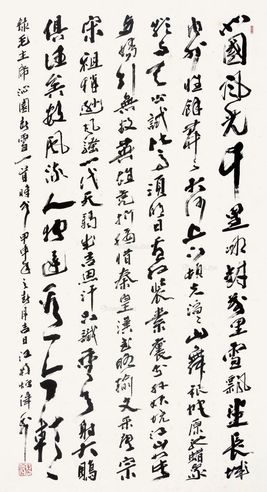 北國風光千里冰封萬里雪飄望長城
內外惟餘莽莽大河上下頓失滔滔山舞銀蛇原馳蠟象
欲與天公試比高須晴日看紅裝素裹分外妖嬈江山如此
多嬌引無數英雄競折腰惜秦皇漢武略輸文采唐宗
宋祖稍遜風騷一代天驕成吉思汗只識彎弓射大鵰
俱往矣數風流人物還看今朝
錄毛主席沁園春雪一首時於甲申年之春月吉日